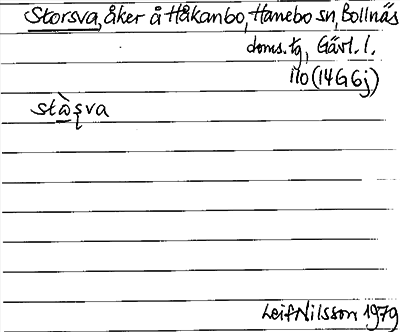 Storsva, åker å Håkanbo, Hanebo sn, Bollnäs
doms. tg, Gävl. l.
110 (14G6j)
stàʂva
Leif Nilsson 1979